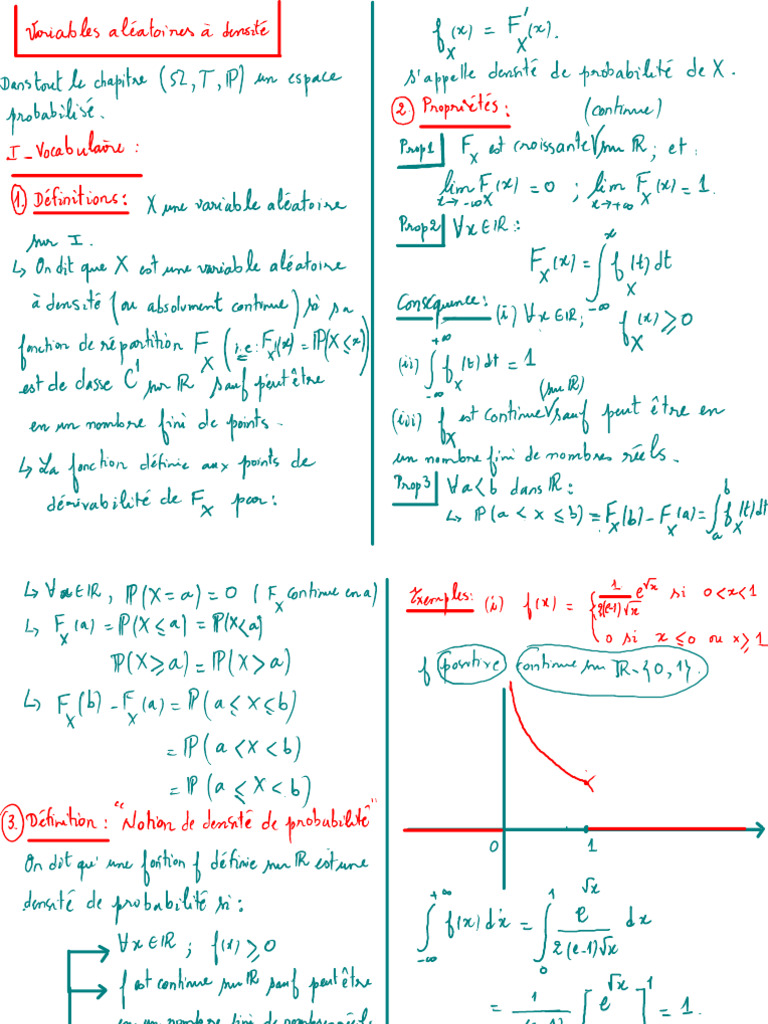 Variables aléatoires à densité
Dans tout le chapitre (Ω, T, ℙ) un espace
probabilisé.
I_Vocabulaire :
1. Définitions : X une variable aléatoire
sur I.
↳ On dit que X est une variable aléatoire
à densité (ou absolument continue) si sa
fonction de répartition F_X (i.e : F_X(x) = ℙ(X ≤ x))
est de classe C¹ sur ℝ sauf peut être
en un nombre fini de points.
↳ La fonction définie aux points de
dérivabilité de F_X par :
f_X(x) = F'_X(x).
s'appelle densité de probabilité de X.
2. Propriétés :
Prop1 F_X est croissante (continue) sur ℝ ; et :
lim_{x→-∞} F_X(x) = 0 ; lim_{x→+∞} F_X(x) = 1.
Prop2 ∀x∈ℝ :
F_X(x) = ∫_{-∞}^{x} f_X(t) dt
Conséquence : (i) ∀x∈ℝ ; f_X(x) ≥ 0
(ii) ∫_{-∞}^{+∞} f_X(t) dt = 1
(iii) f_X est continue (sur ℝ) sauf peut être en
un nombre fini de nombres réels.
Prop3 ∀a<b dans ℝ :
↳ ℙ(a < X ≤ b) = F_X(b) - F_X(a) = ∫_a^b f_X(t) dt
↳ ∀x∈ℝ, ℙ(X = a) = 0 (F_X continue en a)
↳ F_X(a) = ℙ(X ≤ a) = ℙ(X < a)
ℙ(X ≥ a) = ℙ(X > a)
↳ F_X(b) - F_X(a) = ℙ(a ≤ X ≤ b)
= ℙ(a < X < b)
= ℙ(a ≤ X < b)
3. Définition : "Notion de densité de probabilité"
On dit qu'une fontion f définie sur ℝ est une
densité de probabilité si :
∀x∈ℝ ; f(x) ≥ 0
f est continue sur ℝ sauf peut être
en un nombre fini de nombres réels
Exemples : (i) f(x) = { 1/(2(e-1)√x) e^{√x} si 0<x<1
0 si x ≤ 0 ou x ≥ 1
f positive continue sur ℝ-{0,1}.
0 1
∫_{-∞}^{+∞} f(x) dx = ∫_0^1 e^{√x}/(2(e-1)√x) dx
= 1/(e-1) [e^{√x}]^1 = 1.